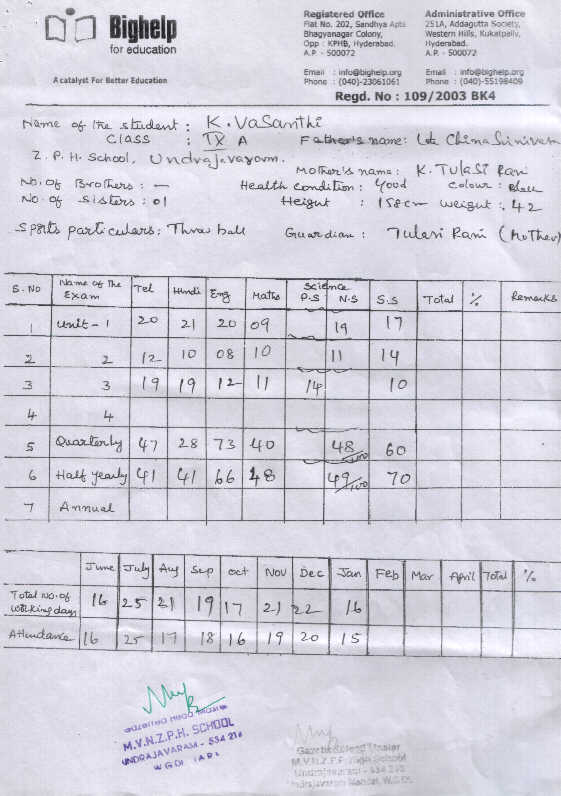 Bighelp
for education
A catalyst For Better Education
Registered Office
Flat No. 202, Sandhya Apts
Bhagyanagar Colony,
Opp : KPHB, Hyderabad.
A.P. - 500072
Email : info@bighelp.org
Phone : (040)-23061061
Administrative Office
251A, Addagutta Society,
Western Hills, Kukatpally,
Hyderabad.
A.P. - 500072
Email : info@bighelp.org
Phone : (040)-55198409
Regd. No : 109/2003 BK4
Name of the student : K. Vasanthi
CLASS : IX A Father's name: Late China Srinivas
Z. P. H. School, Undrajavaram.
Mother's name : K. Tulasi Rani
No. of Brothers : — Health condition : Good Colour : Black
No. of Sisters : 01 Height : 158cm weight : 42
Sports particulars : Throw ball Guardian : Tulasi Rani (Mother)
S. No Name of the Exam Tel Hindi Eng Maths Science P.S N.S S.S Total % Remarks
1 Unit - 1 20 21 20 09 19 17
2 2 12 10 08 10 11 14
3 3 19 19 12 11 14 10
4 4
5 Quarterly 47 28 73 40 48/100 60
6 Half yearly 41 41 66 48 49/100 70
7 Annual
June July Aug Sep Oct Nov Dec Jan Feb Mar April Total %
Total No. of working days 16 25 21 19 17 21 22 16
Attendance 16 25 17 18 16 19 20 15
M.V.N.Z.P.H. SCHOOL
UNDRAJAVARAM - 534 216
Undrajavaram Mandal, W.G.Dt.